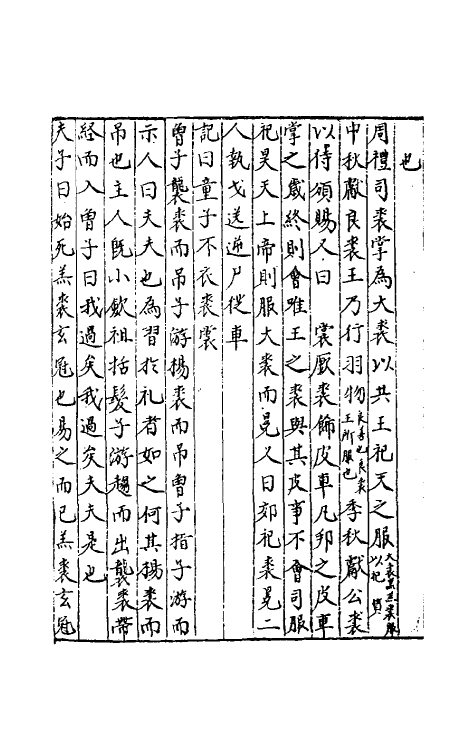 也
周禮司裘掌為大裘以共王祀天之服大裘黑羔裘服以祀質
中秋獻良裘王乃行羽物良善也良裘王所服也季秋獻公裘
以待頒賜又曰 裳厭裘飾皮車凡邦之皮車
掌之歲終則會唯王之裘與其皮事不會司服
祀昊天上帝則服大裘而冕又曰郊祀裘冕二
人執戈送逆尸從車
記曰童子不衣裘裳
曾子襲裘而吊子游裼裘而吊曾子指子游而
示人曰夫夫也為習於礼者如之何其裼裘而
吊也主人既小歛袒括髮子游趨而出襲裘帶
絰而入曾子曰我過矣我過矣夫夫是也
夫子曰始死羔裘玄冠也易之而已羔裘玄冠